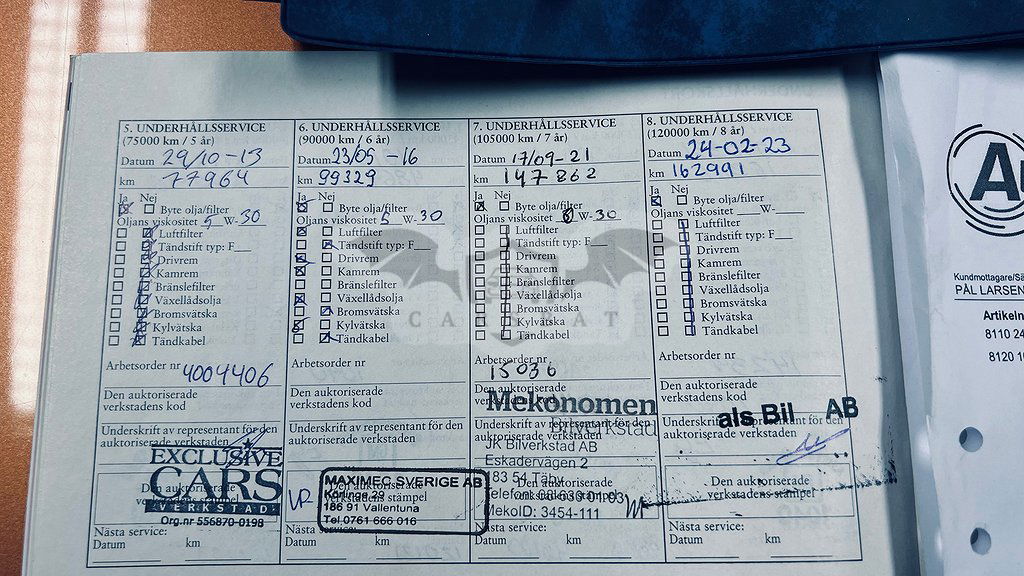 5. UNDERHÅLLSSERVICE
(75000 km / 5 år)
Datum 29/10-13
km 77964
Ja Nej
Byte olja/filter
Oljans viskositet 5 W-30
Luftfilter
Tändstift typ: F
Drivrem
Kamrem
Bränslefilter
Växellådsolja
Bromsvätska
Kylvätska
Tändkabel
Arbetsorder nr
4004406
Den auktoriserade
verkstadens kod
Underskrift av representant för den
auktoriserade verkstaden
EXCLUSIVE
CARS
VERKSTAD
Org.nr 556870-0198
Den auktoriserade
verkstadens stämpel
Nästa service:
Datum km
6. UNDERHÅLLSSERVICE
(90000 km / 6 år)
Datum 23/05-16
km 99329
Ja Nej
Byte olja/filter
Oljans viskositet 5 W-30
Luftfilter
Tändstift typ: F
Drivrem
Kamrem
Bränslefilter
Växellådsolja
Bromsvätska
Kylvätska
Tändkabel
Arbetsorder nr
Den auktoriserade
verkstadens kod
Underskrift av representant för den
auktoriserade verkstaden
MAXIMEC SVERIGE AB
Körlinge 29
186 91 Vallentuna
Tel 0761 666 016
Den auktoriserade
verkstadens stämpel
Nästa service:
Datum km
7. UNDERHÅLLSSERVICE
(105000 km / 7 år)
Datum 17/09-21
km 147862
Ja Nej
Byte olja/filter
Oljans viskositet W-30
Luftfilter
Tändstift typ: F
Drivrem
Kamrem
Bränslefilter
Växellådsolja
Bromsvätska
Kylvätska
Tändkabel
Arbetsorder nr
15036
Den auktoriserade
verkstadens kod
Mekonomen
Bilverkstad
Underskrift av representant för den
auktoriserade verkstaden
JK Bilverkstad AB
Eskadervägen 2
183 54 Täby
Telefon: 08-630 01 03
MekoID: 3454-111
Nästa service:
Datum km
8. UNDERHÅLLSSERVICE
(120000 km / 8 år)
Datum 24-02-23
km 162991
Ja Nej
Byte olja/filter
Oljans viskositet W-
Luftfilter
Tändstift typ: F
Drivrem
Kamrem
Bränslefilter
Växellådsolja
Bromsvätska
Kylvätska
Tändkabel
Arbetsorder nr
Den auktoriserade
verkstadens kod
als Bil AB
Underskrift av representant för den
auktoriserade verkstaden
Den auktoriserade
verkstadens stämpel
Nästa service:
Datum km
Kundmottagare/Sä
PÅL LARSEN
Artikeln
8110 24
8120 1